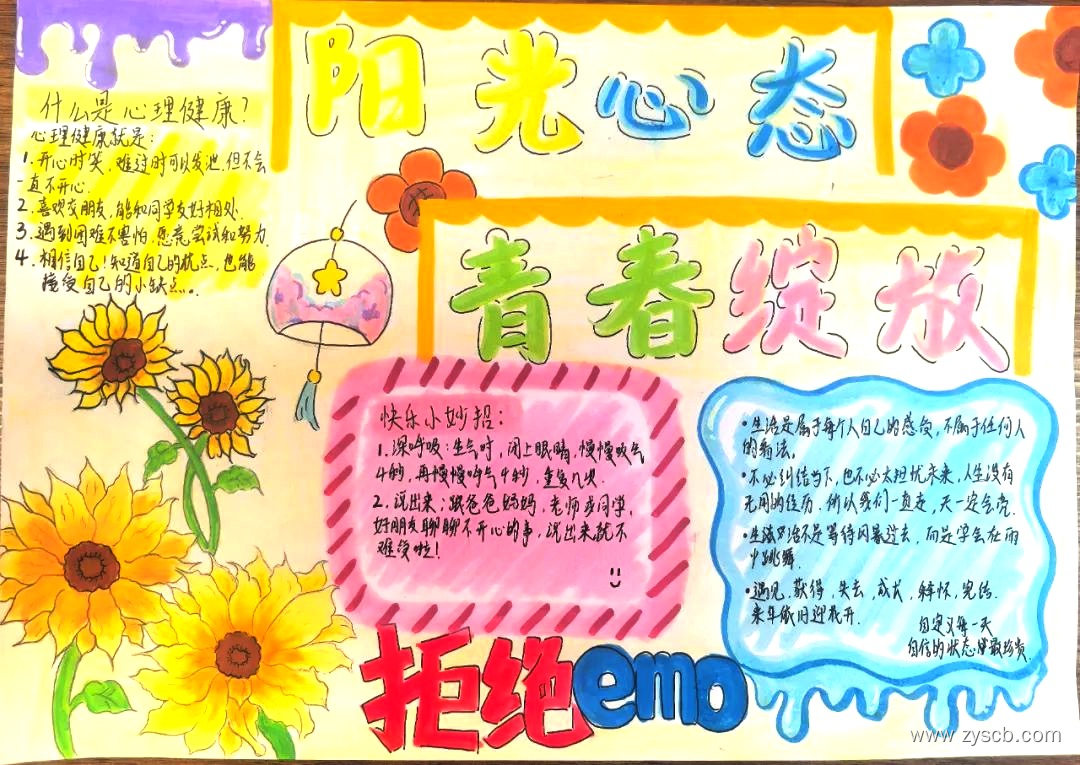 阳光心态
什么是心理健康?
心理健康就是:
1.开心时笑,难过时可以发泄,但不会
一直不开心.
2.喜欢交朋友,能和同学友好相处.
3.遇到困难不害怕,愿意尝试和努力.
4.相信自己!知道自己的优点,也能
接受自己的小缺点.
青春绽放
快乐小妙招:
1.深呼吸:生气时,闭上眼睛,慢慢吸气
4秒,再慢慢呼气4秒,重复几次.
2.说出来:跟爸爸妈妈,老师或同学,
好朋友聊聊不开心的事,说出来就不
难受啦!
•生活是属于每个人自己的感受,不属于任何人
的看法.
•不必纠结当下,也不必太担忧未来,人生没有
无用的经历,所以我们一直走,天一定会亮.
•生活不是等待风暴过去,而是学会在雨
中跳舞.
•遇见,获得,失去,成长,释怀,完结.
来年依旧迎花开.
自定义每一天
自信的状态最珍贵.
拒绝emo
www.zyscb.com